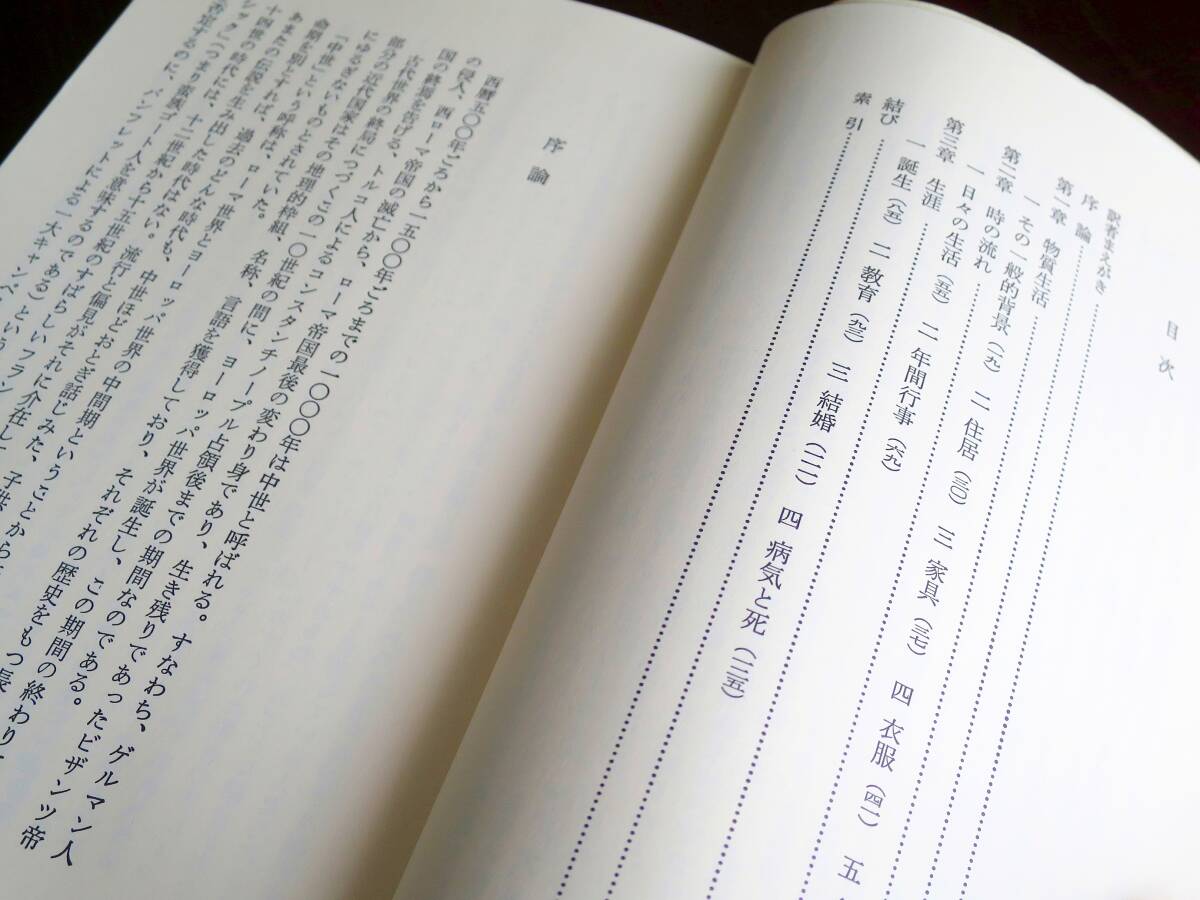 目次
訳者まえがき
序論
第一章 物質生活
一 その一般的背景(一九) 二 住居(三〇) 三 家具(三七) 四 衣服(四一) 五
第二章 時の流れ
一 日々の生活(五五) 二 年間行事(六九)
第三章 生涯
一 誕生(八五) 二 教育(九三) 三 結婚(一一一) 四 病気と死(一二五)
結び
索引
序論
西暦五〇〇年ころから一五〇〇年ころまでの一〇〇〇年は中世と呼ばれる。すなわち、ゲルマン人
の侵入、西ローマ帝国の滅亡から、ローマ帝国最後の変わり身であり、生き残りであったビザンツ帝
国の終焉を告げる、トルコ人によるコンスタンチノープル占領後までの期間なのである。
古代世界の終局につづくこの一〇世紀の間に、ヨーロッパ世界が誕生し、この期間の終わり
部分の近代国家はその地理的枠組、名称、言語を獲得しており、それぞれの歴史をもつ長
にゆるぎないものとされていた。
「中世」という呼称は、ローマ世界とヨーロッパ世界の中間期ということから
命期を別とすれば、過去のどんな時代も、中世ほどおとぎ話じみた、子供
あまたの伝説を生み出した時代はない。流行と偏見がそれに介在し
十四世の時代には、十二世紀から十五世紀のすばらしいフラン
シック」(つまり蛮族ゴート人を意味するのである)という
否定するのに、パンフレットによる一大キャンペ